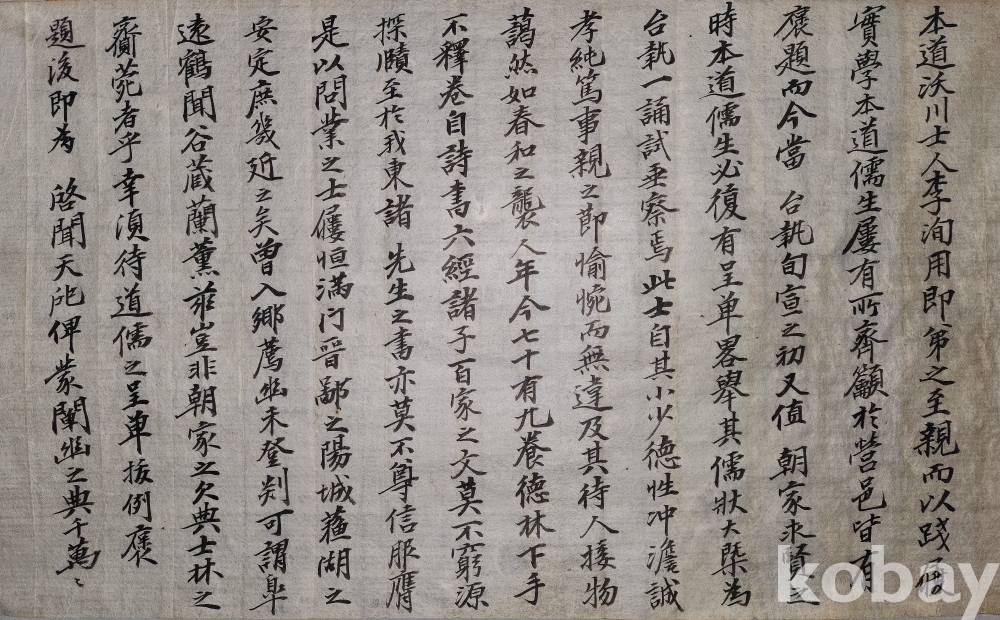 本道沃川士人李洵用即弟之至親而以踐履
實學本道儒生屢有所齊籲於營邑皆有
褒題而今當 台執旬宣之初又值 朝家求賢之
時本道儒生必復有呈单畧舉其儒狀大槩為
台執一誦試垂察焉此士自其小少德性冲澹誠
孝純篤事親之節愉惋而無違及其待人接物
藹然如春和之襲人年今七十有九養德林下手
不釋卷自詩書六經諸子百家之文莫不窮源
探賾至於我東諸 先生之書亦莫不尊信服膺
是以問業之士屨恒滿门晋鄙之陽城蘓湖之
安定庶幾近之矣曾入鄉薦幽未登剡可謂臯
遠鶴聞谷蔵蘭薰玆豈非朝家之欠典士林之
齎菀者乎幸湏待道儒之呈单援例褒
題後即为 啓聞天陛俾蒙闡幽之典千萬〻
kobay